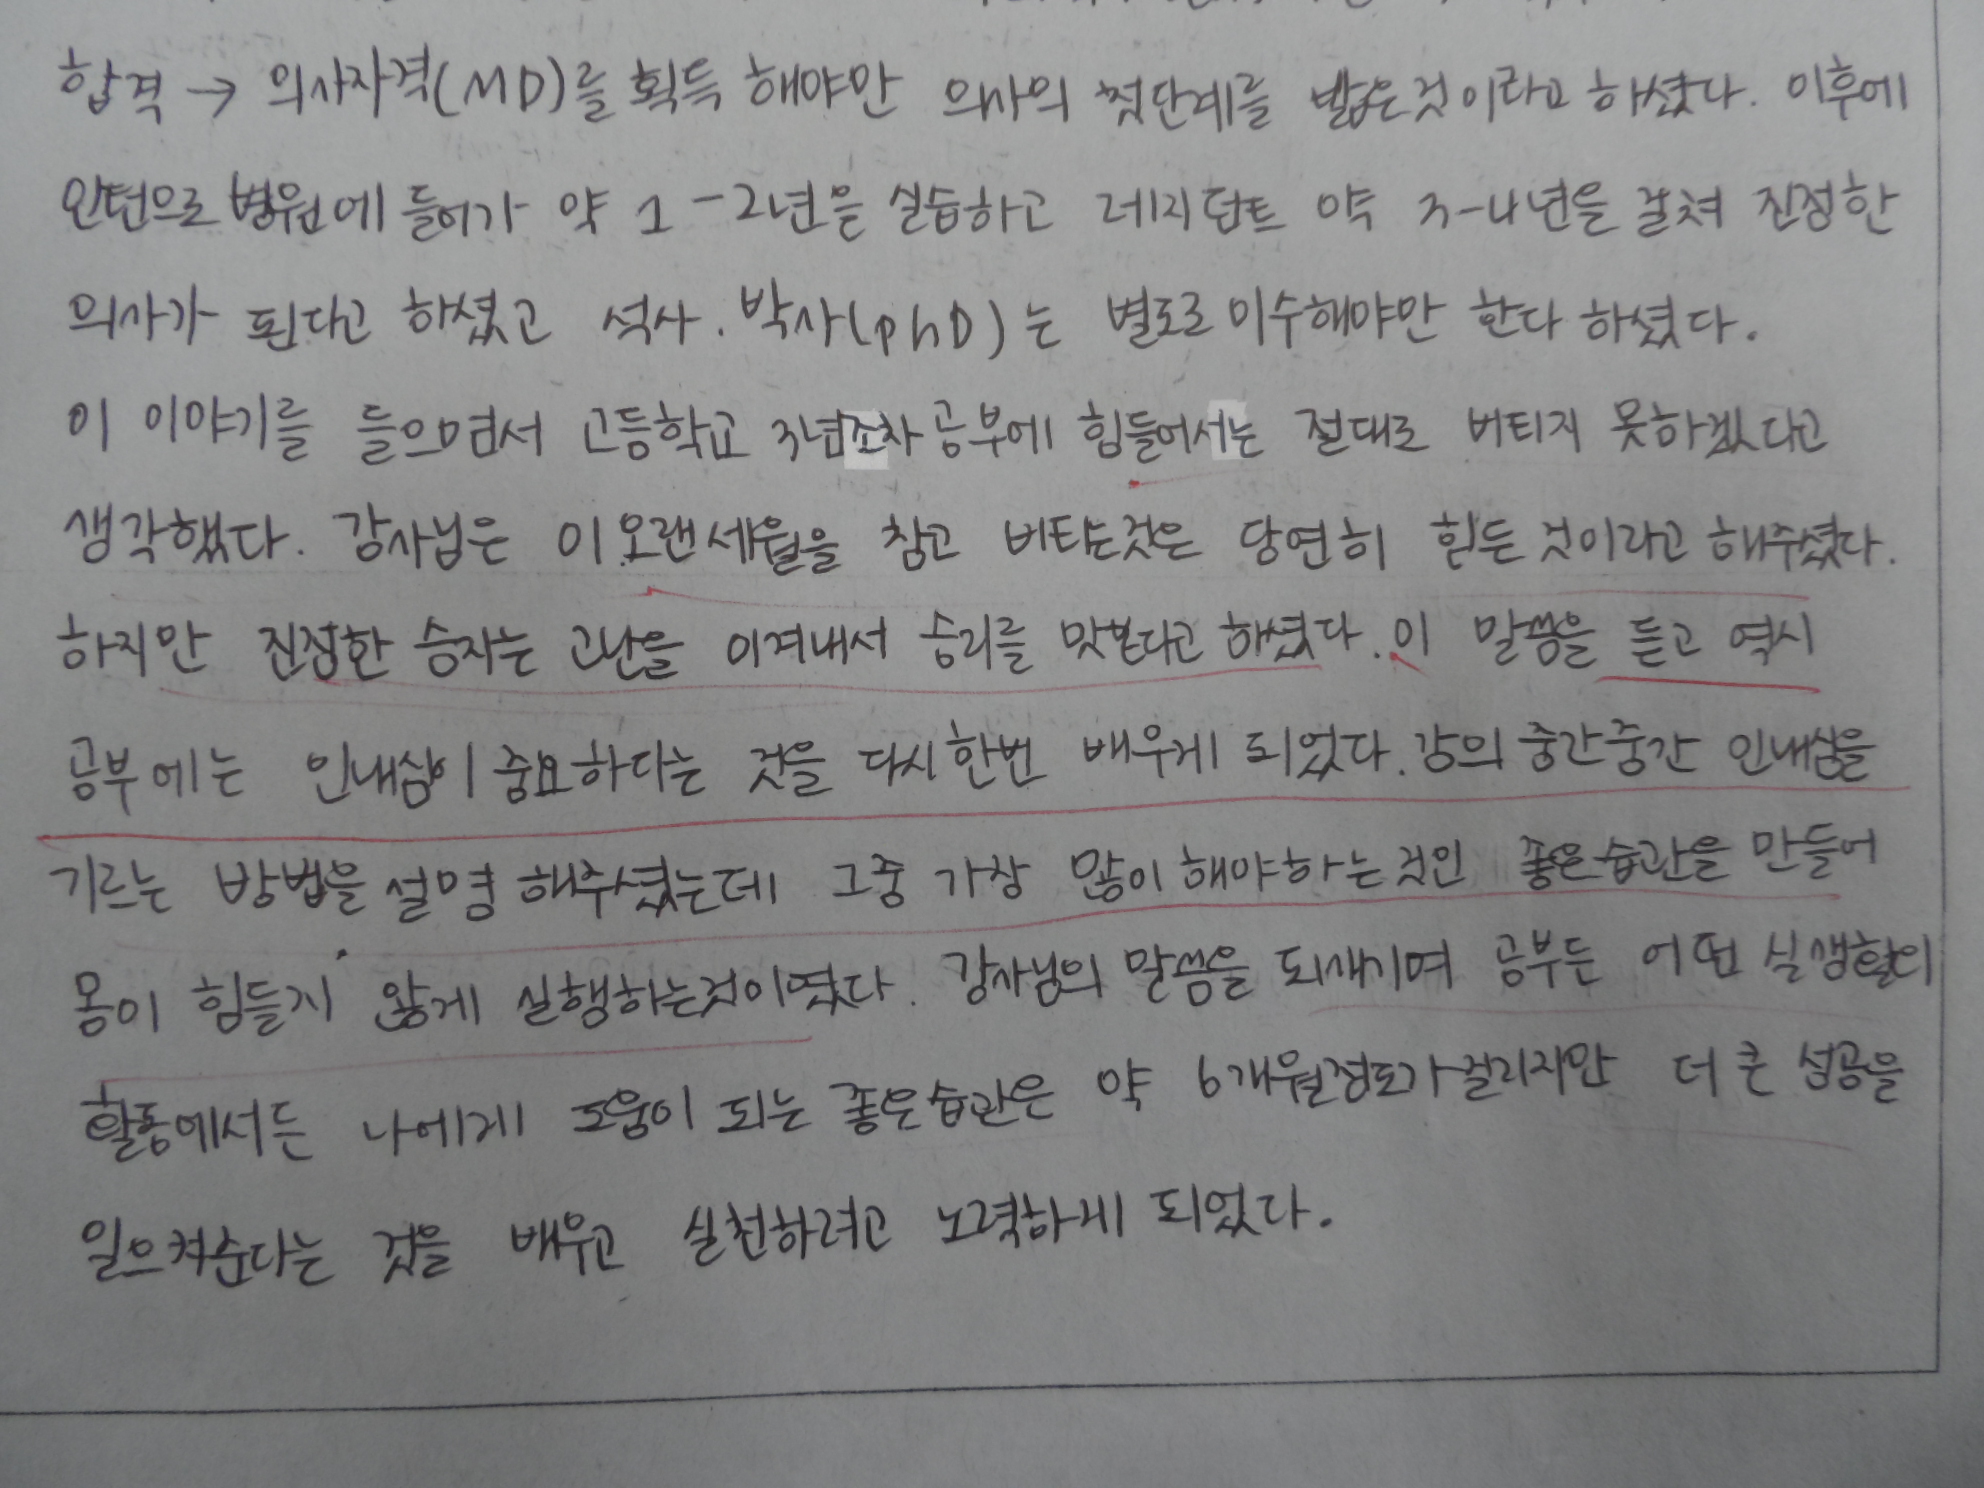 합격 → 의사자격(MD)를 획득 해야만 의사의 첫단계를 밟은것이라고 하셨다. 이후에
인턴으로 병원에 들어가 약 1-2년을 실습하고 레지던트 약 3-4년을 걸쳐 진정한
의사가 된다고 하셨고 석사. 박사(phD)는 별도로 이수해야만 한다 하셨다.
이 이야기를 들으면서 고등학교 3년조차 공부에 힘들어서는 절대로 버티지 못하겠다고
생각했다. 강사님은 이 오랜세월을 참고 버티는것은 당연히 힘든 것이라고 해주셨다.
하지만 진정한 승자는 고난을 이겨내서 승리를 맛본다고 하셨다. 이 말씀을 듣고 역시
공부에는 인내심이 중요하다는 것을 다시한번 배우게 되었다. 강의 중간중간 인내심을
기르는 방법을 설명 해주셨는데 그중 가장 많이 해야하는것인 좋은습관을 만들어
몸이 힘들지 않게 실행하는것이였다. 강사님의 말씀을 되새기며 공부든 어떤 실생활의
활동에서든 나에게 도움이 되는 좋은습관은 약 6개월정도가 걸리지만 더 큰 성공을
일으켜준다는 것을 배우고 실천하려고 노력하게 되었다.